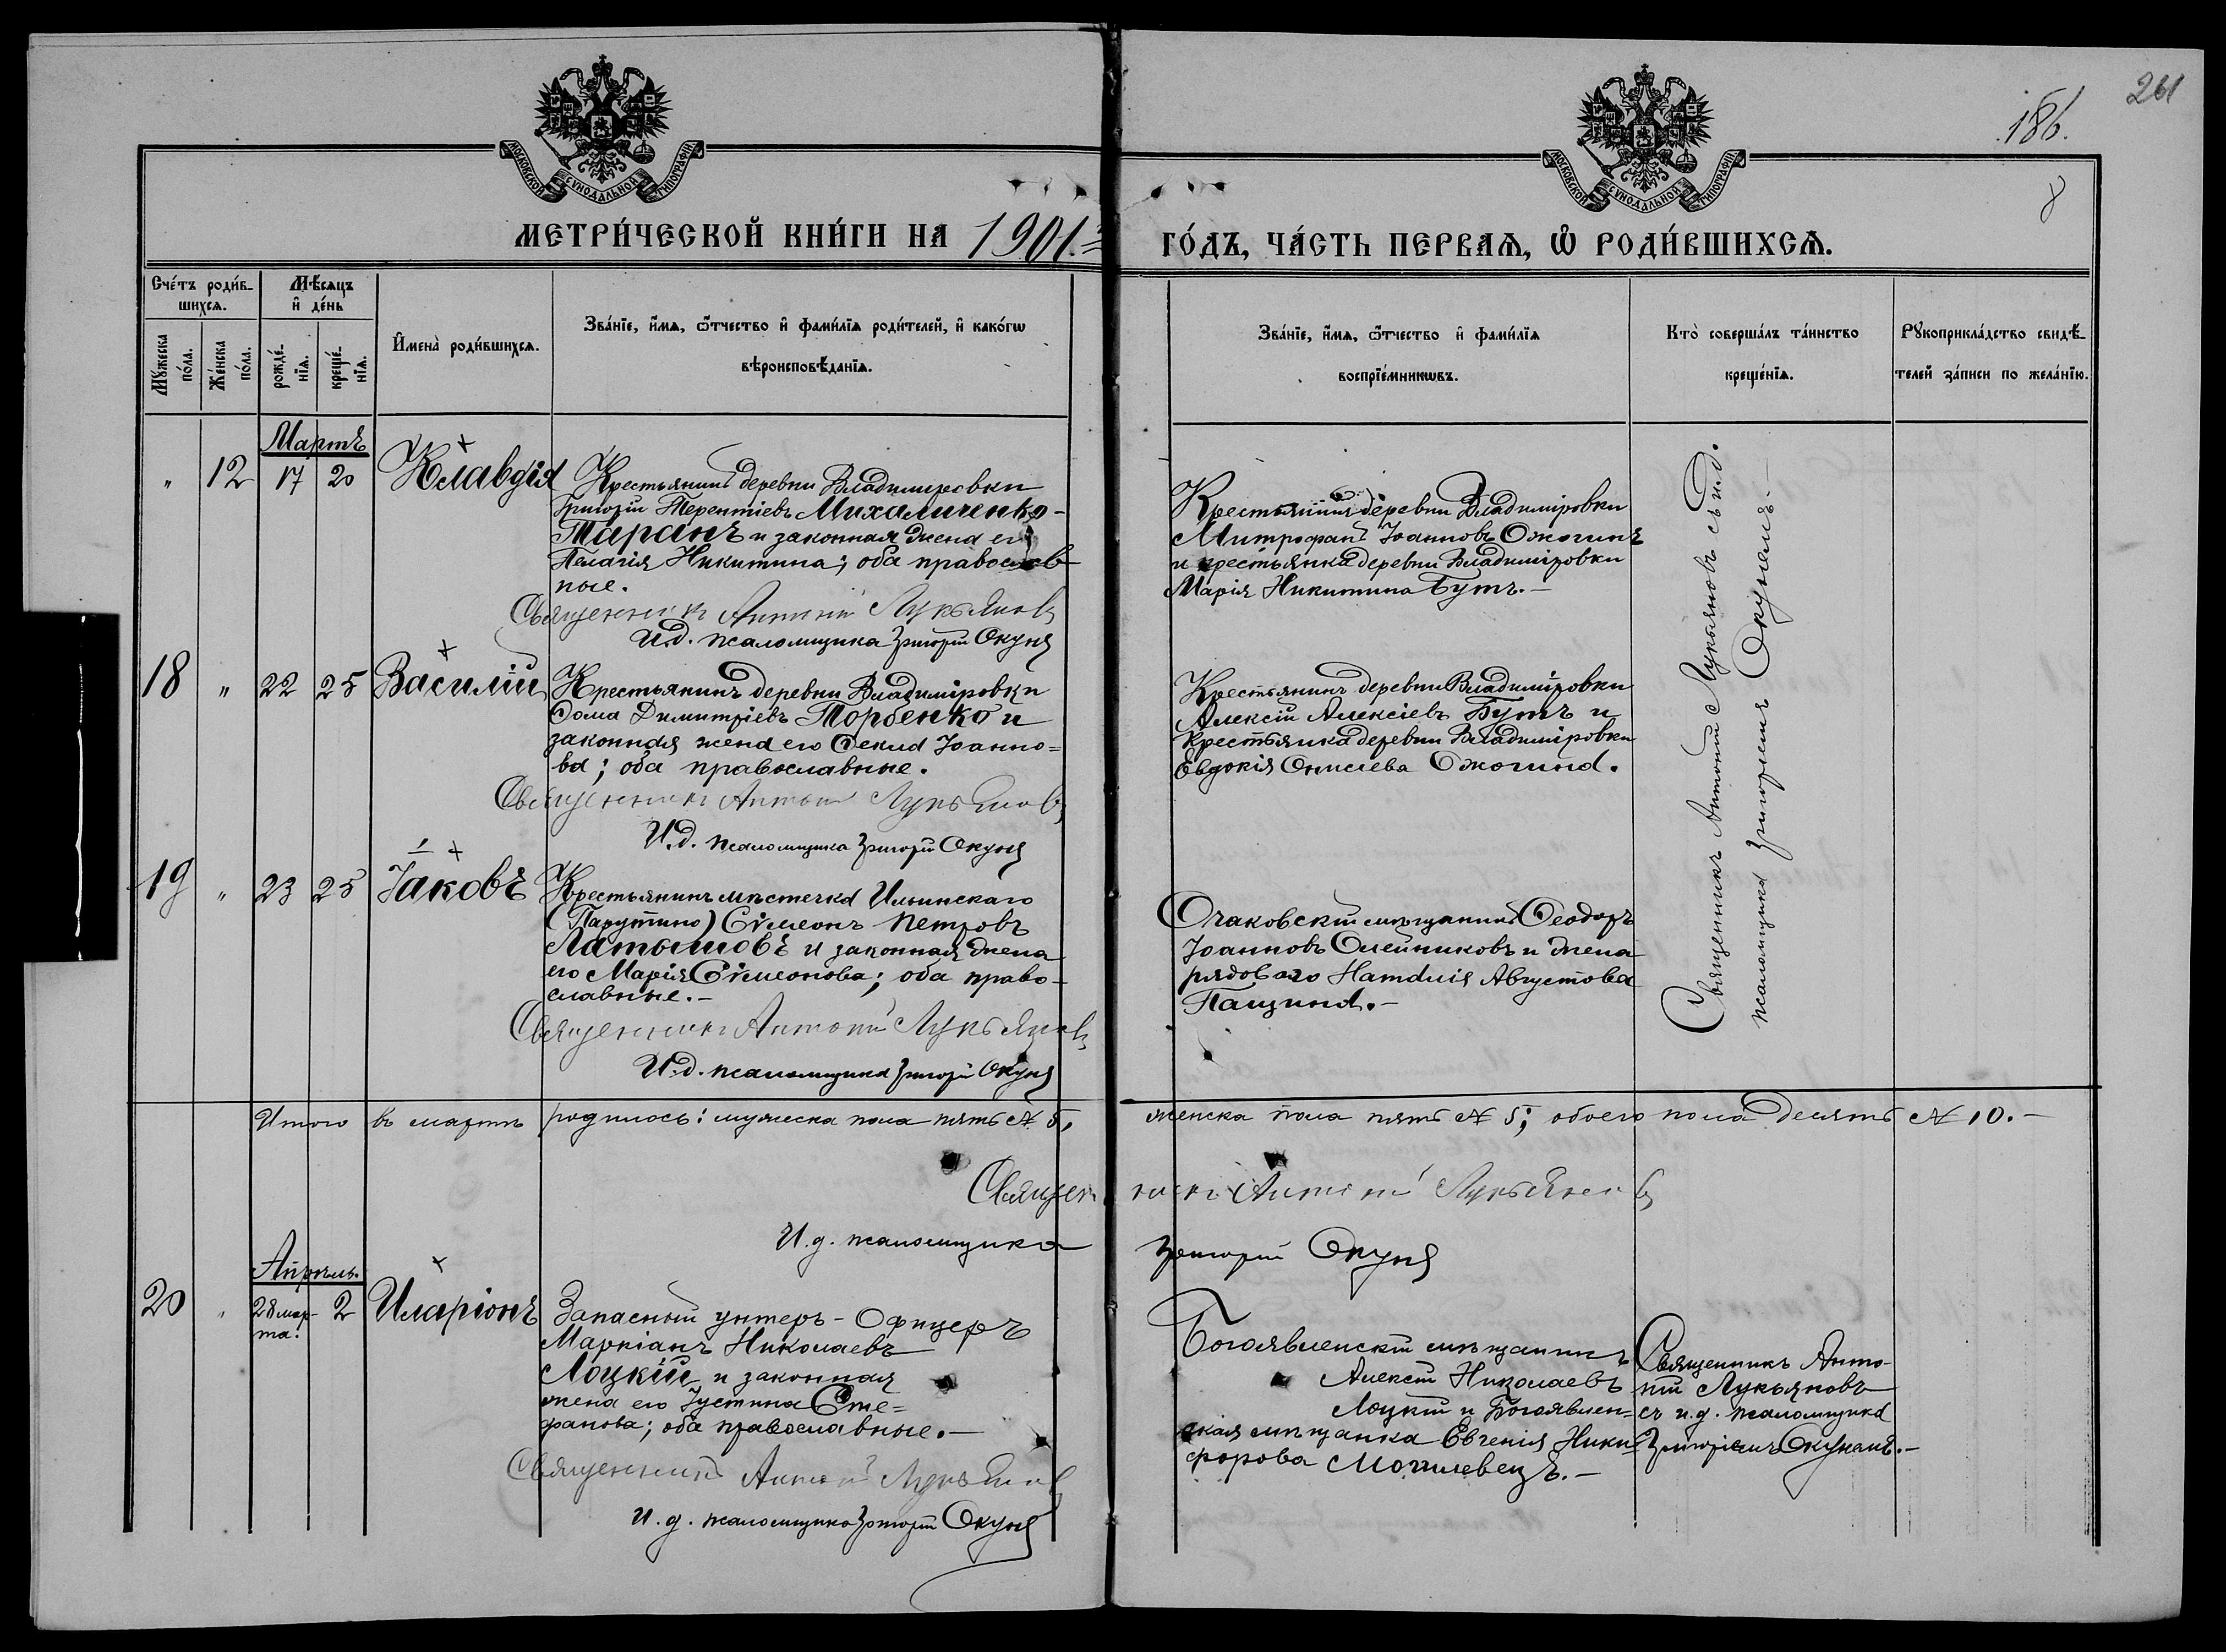 261
186.
8
МОСКОВСКОЙ СѴНОДАЛЬНОЙ ТИПОГРАФІИ
МОСКОВСКОЙ СѴНОДАЛЬНОЙ ТИПОГРАФІИ
МЕТРИ́ЧЕСКОЙ КНИ́ГИ НА 1901. ГО́ДЪ, ЧА́СТЬ ПЕРВАѦ, Ѡ҆ РОДИ́ВШИХСѦ.
Сче́тъ роди́в-
шихсѧ.
Мѣ́сѧцъ
и҆ де́нь
Мꙋжеска
по́ла.
Же́нска
по́ла.
рожде́-
нїѧ.
креще́-
нїѧ.
И҆мена̀ роди́вшихсѧ.
Зва́нїе, и҆́мѧ, ѻ҆́тчество и҆ фами́лїѧ роди́телей, и҆ како́гѡ
вѣроисповѣ́данїѧ.
Зва́нїе, и҆́мѧ, ѻ҆́тчество и҆ фами́лїѧ
воспрїе́мникѡвъ.
Кто̀ соверша́лъ та́инство
креще́нїѧ.
Рꙋкоприкла́дство свидѣ́-
телей за́писи по жела́нїю.
Мартъ
" 12 17 20 Клавдія
Крестьянинъ деревни Владимировки
Григорій Терентіевъ Михаличенко-
Таранъ и законная жена его
Пелагія Никитина; оба православ-
ные.
Священникъ Антоній Лукьяновъ
И.д. псаломщика Григорій Окунь
Крестьянинъ деревни Владиміровки
Митрофанъ Іоанновъ Ожогинъ
и крестьянка деревни Владиміровки
Марія Никитина Бутъ.-
18 " 22 25 Василій
Крестьянинъ деревни Владиміровки
Ѳома Димитріевъ Торбенко и
законная жена его Ѳекла Іоанно=
ва; оба православные.
Священникъ Антоній Лукьяновъ
И.д. псаломщика Григорій Окунь
Крестьянинъ деревни Владиміровки
Алексій Алексіевъ Бутъ и
крестьянка деревни Владиміровки
Евдокія Онисіева Ожогина.
19 " 23 25 Іаковъ
Крестьянинъ мѣстечка Ильинскаго
(Парутино) Сѵмеонъ Петровъ
Латышовъ и законная жена
его Марія Сѵмеонова; оба право-
славные.-
Священникъ Антоній Лукьяновъ
И.д. псаломщика Григорій Окунь
Очаковскій мѣщанинъ Ѳеодоръ
Іоанновъ Олейниковъ и жена
рядоваго Наталія Августова
Пащина.-
Священникъ Антоній Лукьяновъ съ и.д.
псаломщика Григоріемъ Окунемъ.-
Итого въ мартѣ родилось: мужеска пола пять № 5, женска пола пять № 5; обоего пола десять № 10.-
Священникъ Антоній Лукьяновъ
И.д. псаломщика Григорій Окунь
Апрѣль.
20 " 28 мар-
та. 2 Иларіонъ
Запасный унтеръ-офицеръ
Маркіанъ Николаевъ
Лоцкій и законная
жена его Іустина Сте=
фанова; оба православные.-
Священникъ Антоній Лукьяновъ
И.д. псаломщика Григорій Окунь
Богоявленскій мѣщанинъ
Алексій Николаевъ
Лоцкій и Богоявлен=
ская мѣщанка Евгенія Ники-
форова Могилевецъ.-
Священникъ Анто-
ній Лукьяновъ
съ и.д. псаломщика
Григоріемъ Окунемъ.-